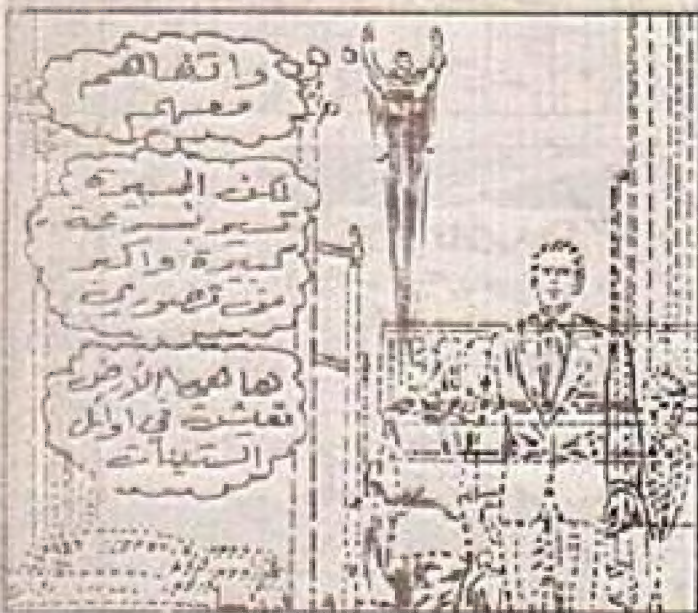 واتفالهم
معهم
لكن المسيرة
تسير بسرعة
كبيرة واكبر
من تصوري
ها هي الارض
تعلشت في اوائل
الستينات